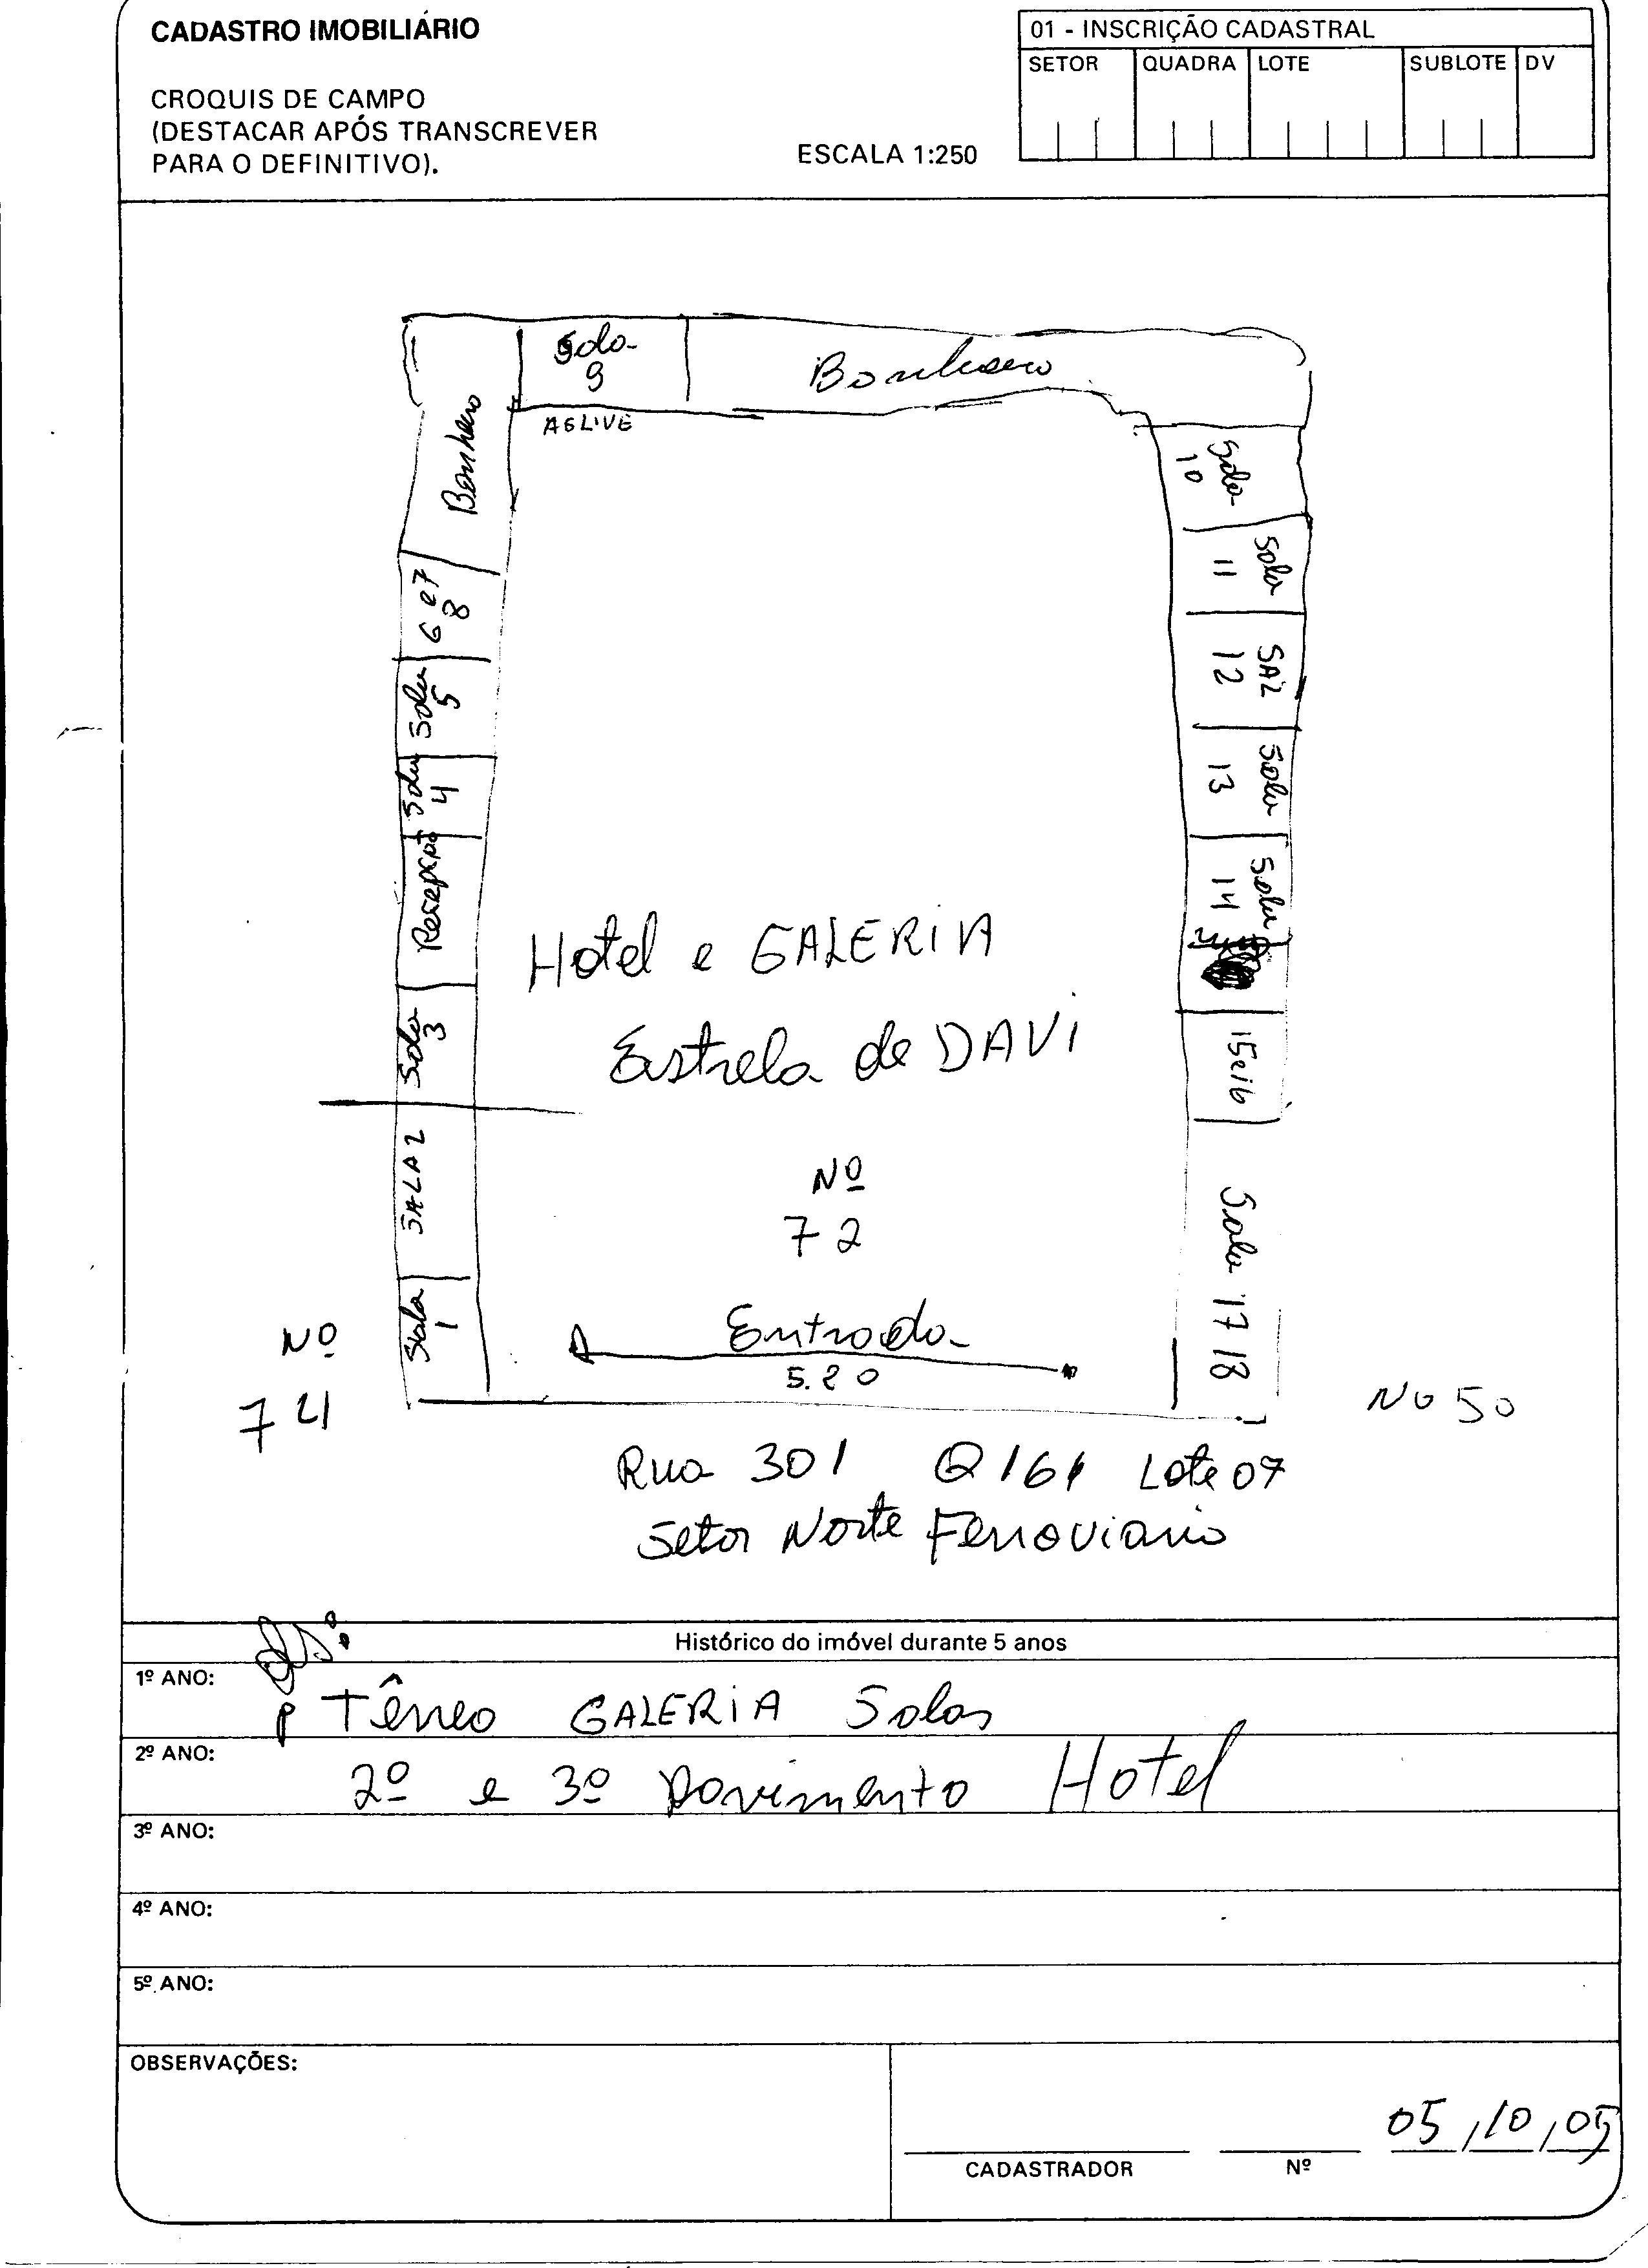 CADASTRO IMOBILIÁRIO
CROQUIS DE CAMPO
(DESTACAR APÓS TRANSCREVER
PARA O DEFINITIVO).
ESCALA 1:250
01 - INSCRIÇÃO CADASTRAL
SETOR QUADRA LOTE SUBLOTE DV
Sala
9
Banheiro
Banheiro
Sala
10
Sala
11
6 e 7
8
SAL
12
Sala
5
Sala
13
Sala
4
Recepção
Sala
14
Hotel e GALERIA
Sala
3
Estrela de DAVI
15 e 16
SALA 2
Nº
72
Sala 17 18
Sala
1
Entrada
5.20
Nº
74
Nº 50
Rua 301 Q 161 Lote 07
Setor Norte Ferroviario
Histórico do imóvel durante 5 anos
1º ANO:
Térreo GALERIA Salas
2º ANO:
2º e 3º Pavimento Hotel
3º ANO:
4º ANO:
5º ANO:
OBSERVAÇÕES:
05/10/05
CADASTRADOR Nº